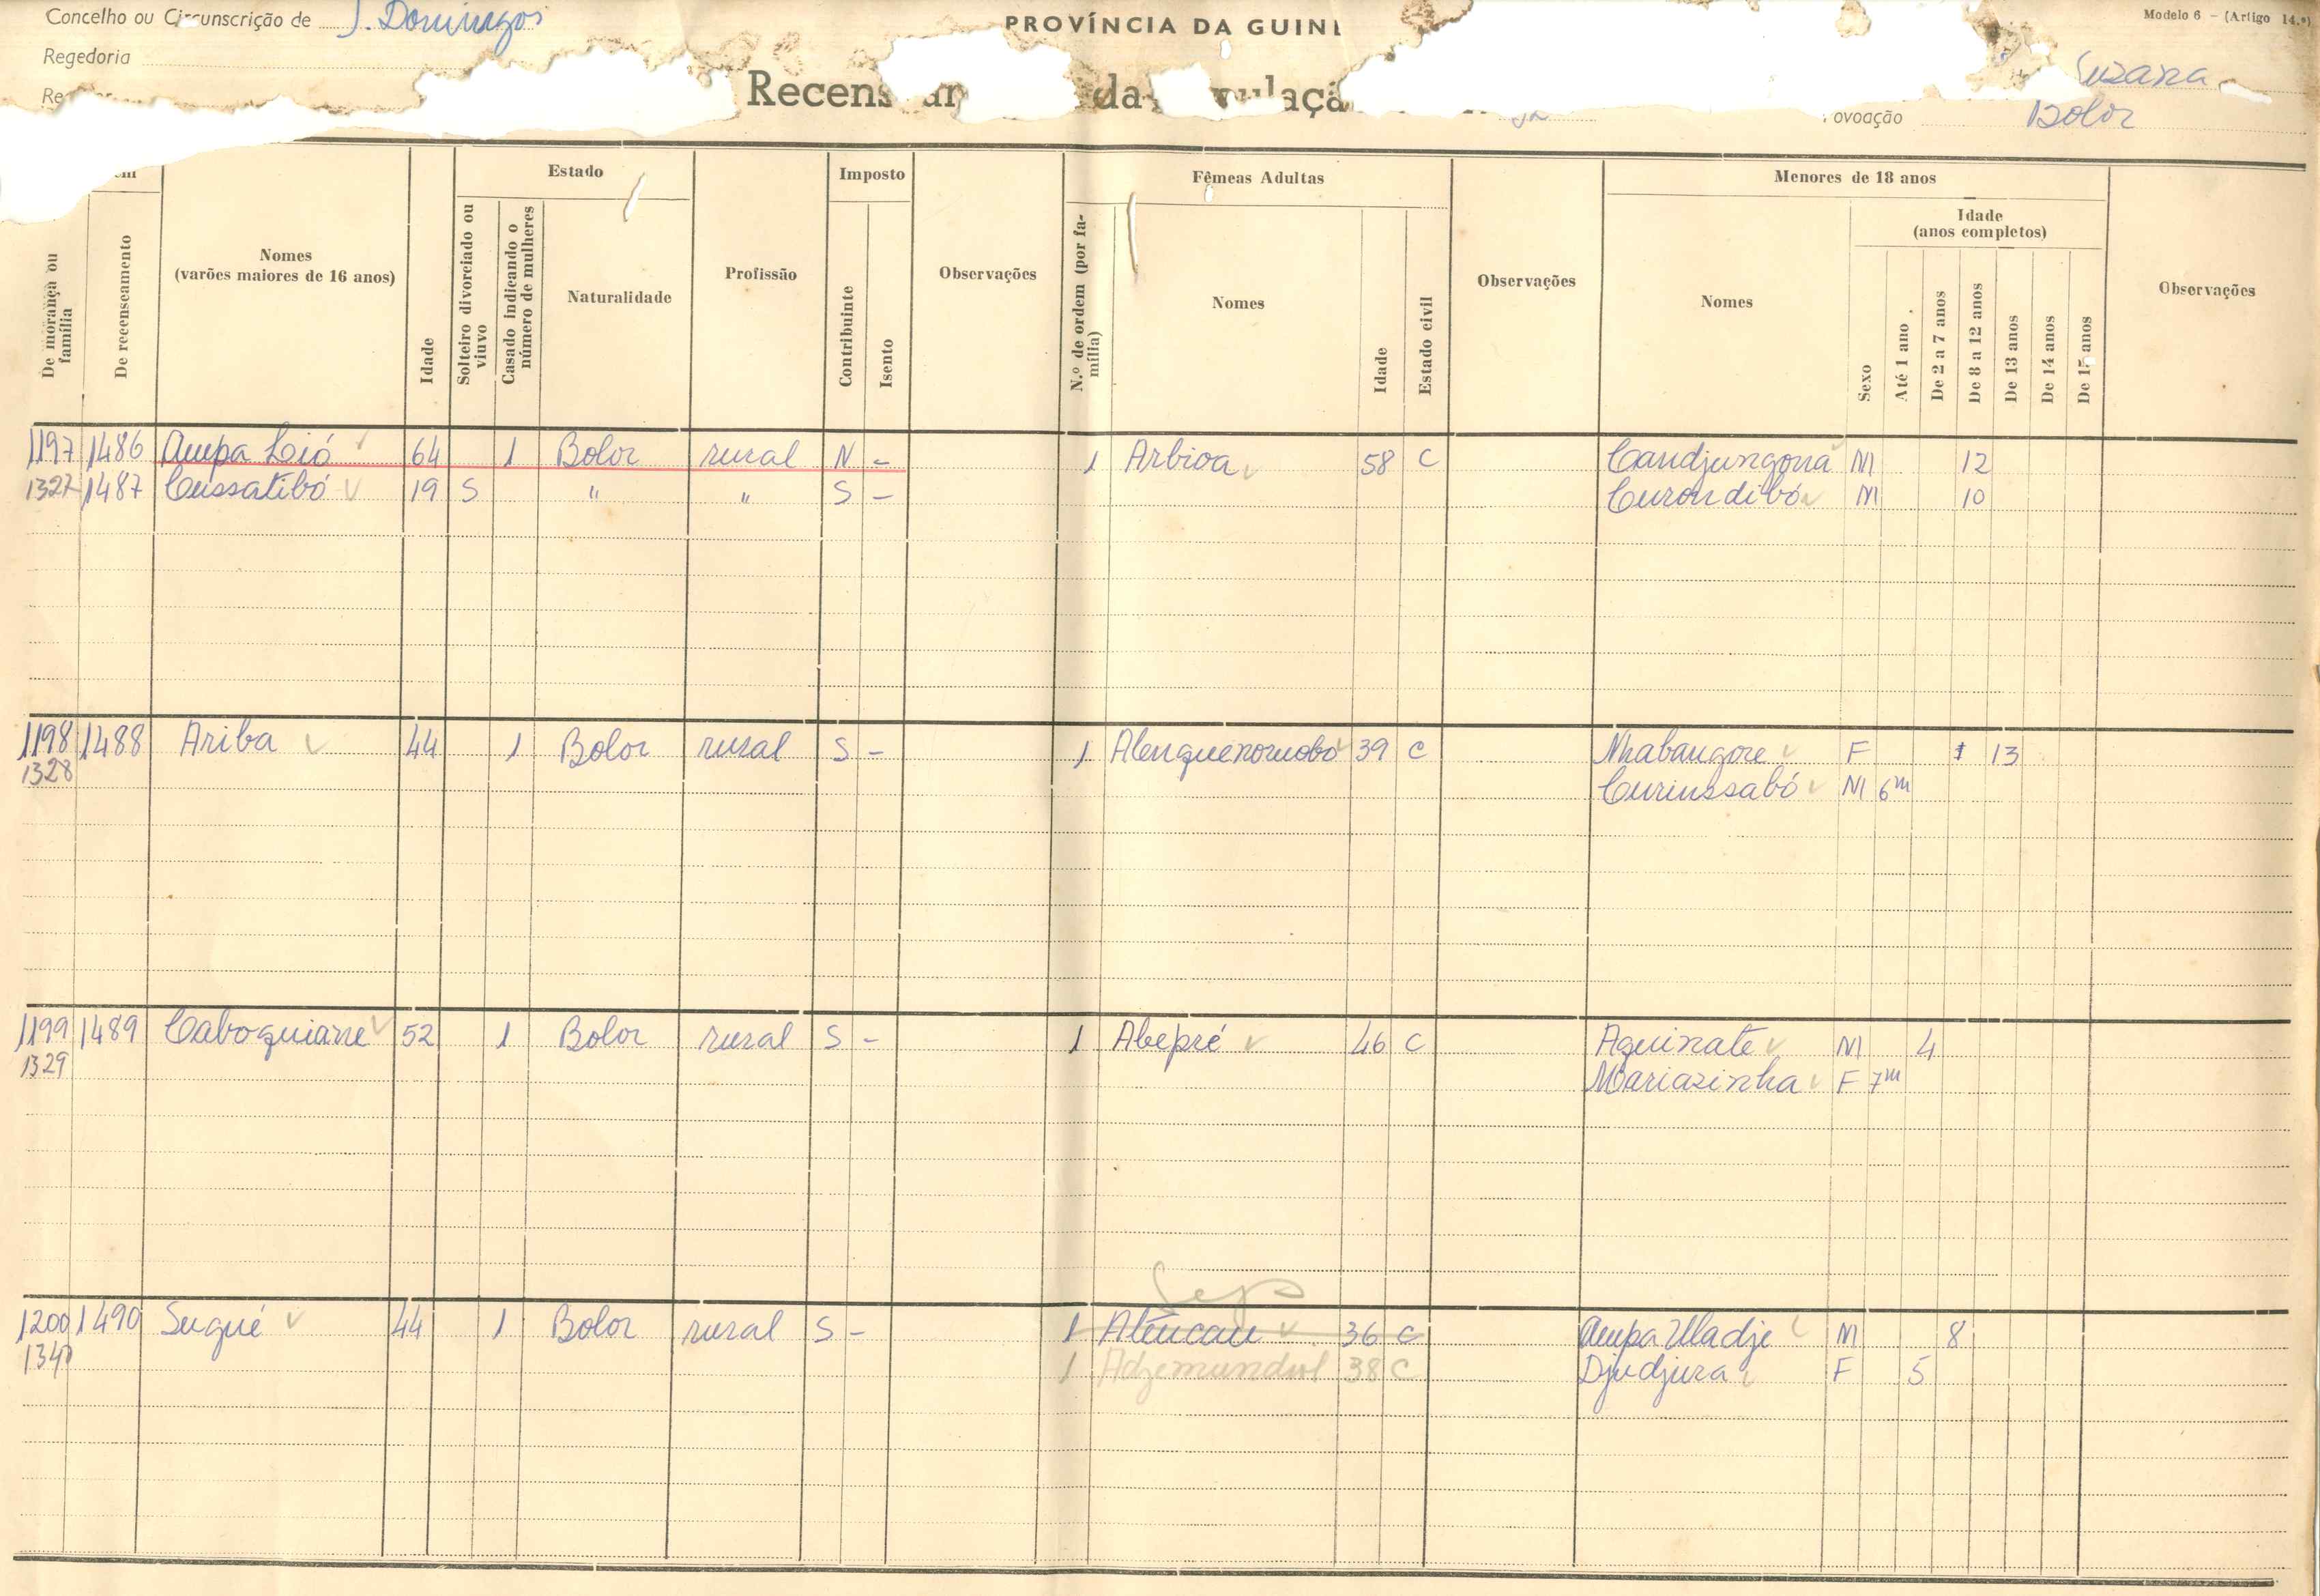 Concelho ou Circunscrição de S. Domingos
PROVÍNCIA DA GUINÉ
Modelo 6 - (Artigo 14.º)
Regedoria
Suzana
Recens da
Bolor
Estado
Imposto
Fêmeas Adultas
Menores de 18 anos
De morança ou família
De recenseamento
Nomes
(varões maiores de 16 anos)
Idade
Solteiro divorciado ou viuvo
Casado indicando o número de mulheres
Naturalidade
Profissão
Contribuinte
Isento
Observações
N.º de ordem (por família)
Nomes
Idade
Estado civil
Observações
Nomes
Sexo
Idade
(anos completos)
Até 1 ano
De 2 a 7 anos
De 8 a 12 anos
De 13 anos
De 14 anos
De 15 anos
Observações
1197 1486 Ampa Loió 64 1 Bolor rural N - 1 Arbioa 58 C Candjungona M 12
1327 1487 Cussatibó 19 S " " S - Curondibó M 10
1198 1488 Ariba 44 1 Bolor rural S - 1 Alenquenorudobo 39 C Nhabangore F 13
1328 Curinssabó M 6m
1199 1489 Caboquiane 52 1 Bolor rural S - 1 Abepré 46 C Aquinate M 4
1329 Mariazinha F 7m
Sep
1200 1490 Sugué 44 1 Bolor rural S - 1 Alincau 36 C Ampa Uladje M 8
1 Adjemundul 38 C Djudjura F 5